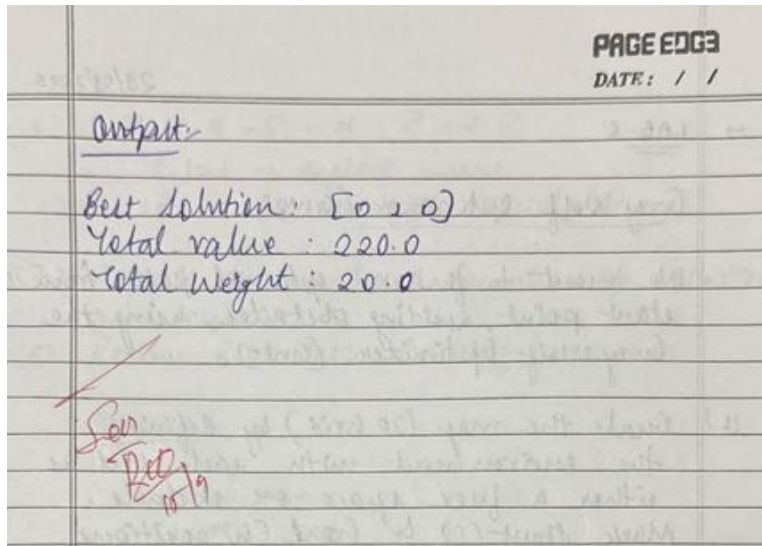 PAGE EDG3
DATE: / /
Output:-
Best Solution: [0 2 0]
Total value : 220.0
Total Weight : 20.0
15/9